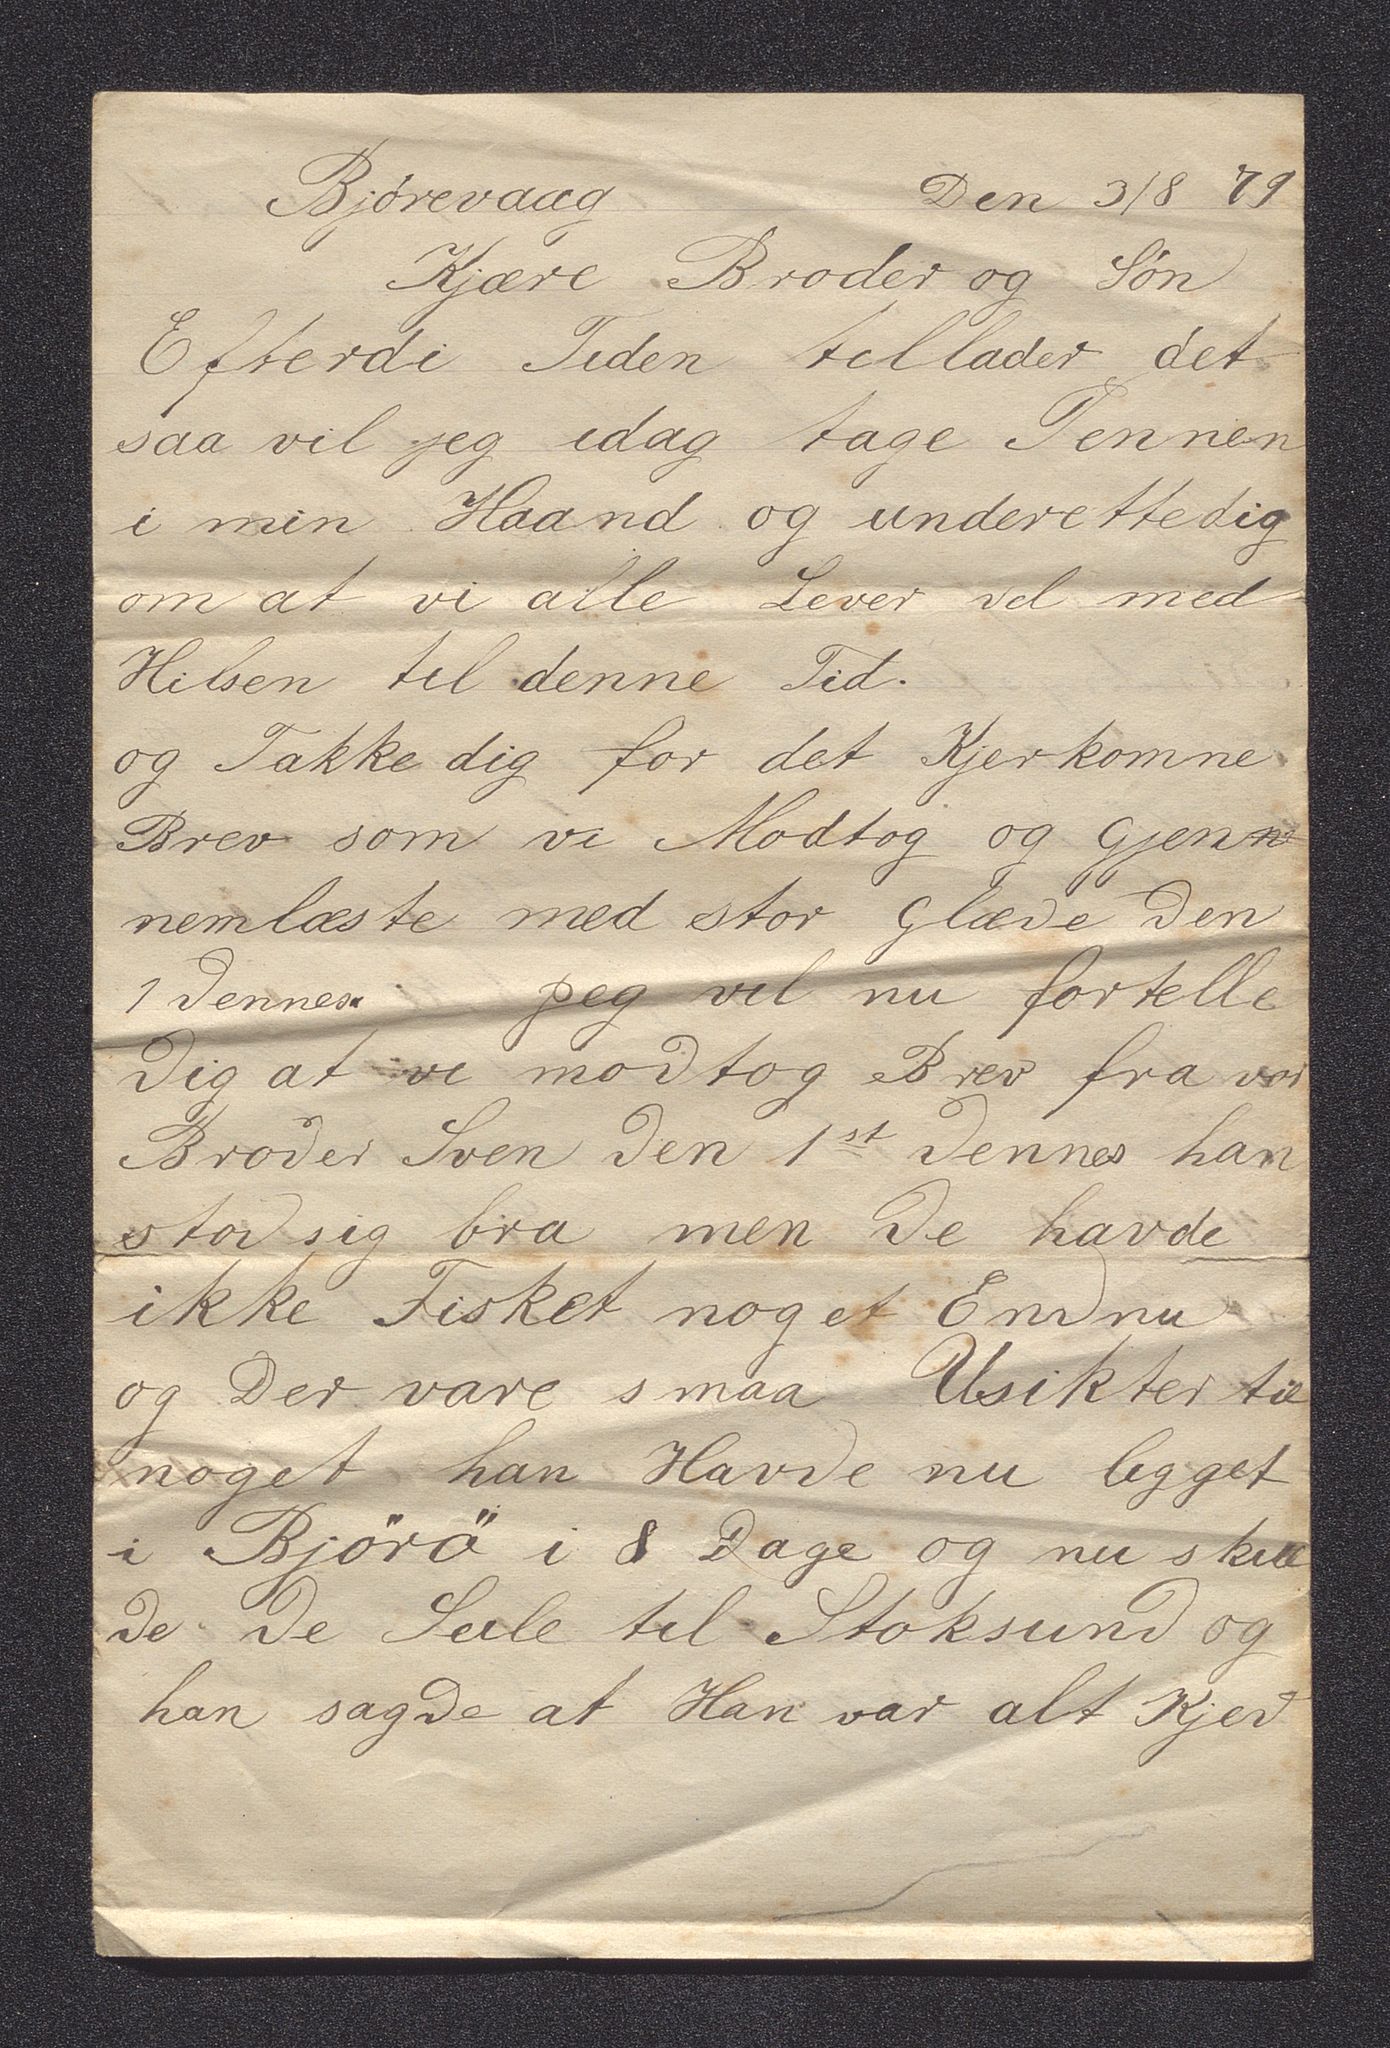 Bjørevaag Den 3/8 79
Kjære Broder og Søn
Efterdi Tiden tillader det
saa vil jeg idag tage Pennen
i min Haand og underette dig
om at vi alle Lever vel med
Hilsen til denne Tid.
og Takke dig for det Kjerkomne
Brev som vi Modtog og Gjenn
nemlæste med stor Glæde Den
1 Dennes. jeg vil nu fortelle
Dig at vi modtog Brev fra vor
Broder Sven Den 1st Dennes han
stod sig bra men De havde
ikke Fisket noget Endnu
og Der vare smaa Usikter til
noget han Havde nu legget
i Björö i 8 Dage og nu skul
de De Seile til Stoksund og
han sagde at Han var alt Kjed